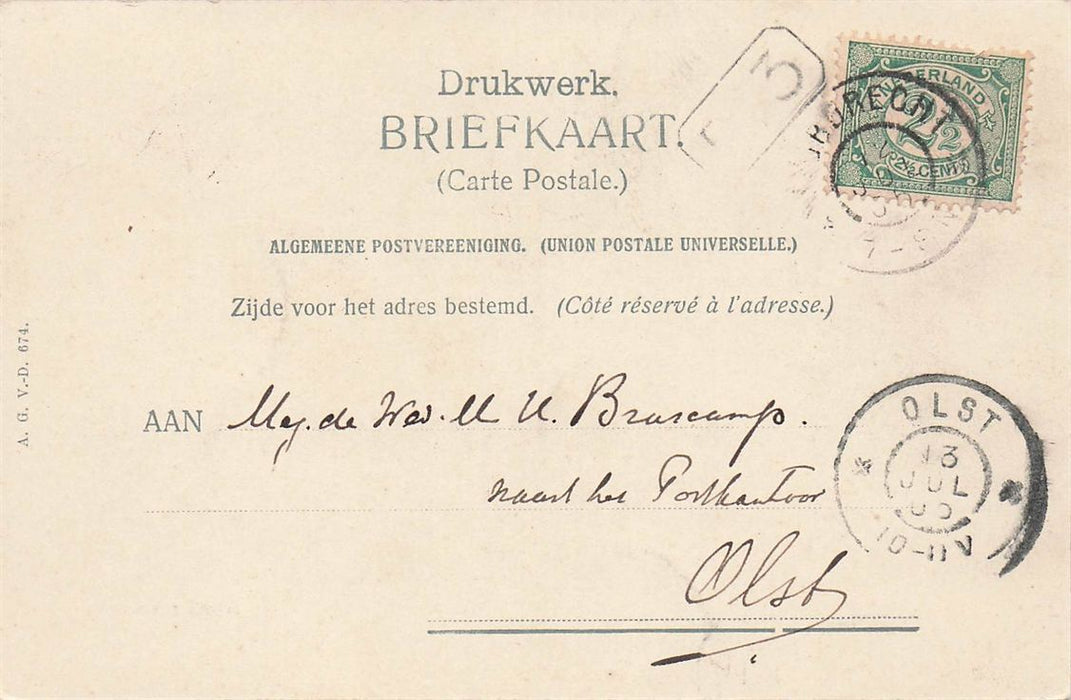 Drukwerk.
BRIEFKAART.
(Carte Postale.)
ALGEMEENE POSTVEREENIGING. (UNION POSTALE UNIVERSELLE.)
Zijde voor het adres bestemd. (Côté réservé à l'adresse.)
NEDERLAND
2½
2½ CENT
DORDRECHT
7-8 N
5
A. G. V.-D. 674.
AAN Mej. de Wed. M U. Bruscamp.
naast het Postkantoor
Olst
OLST
13
JUL
05
10-11V